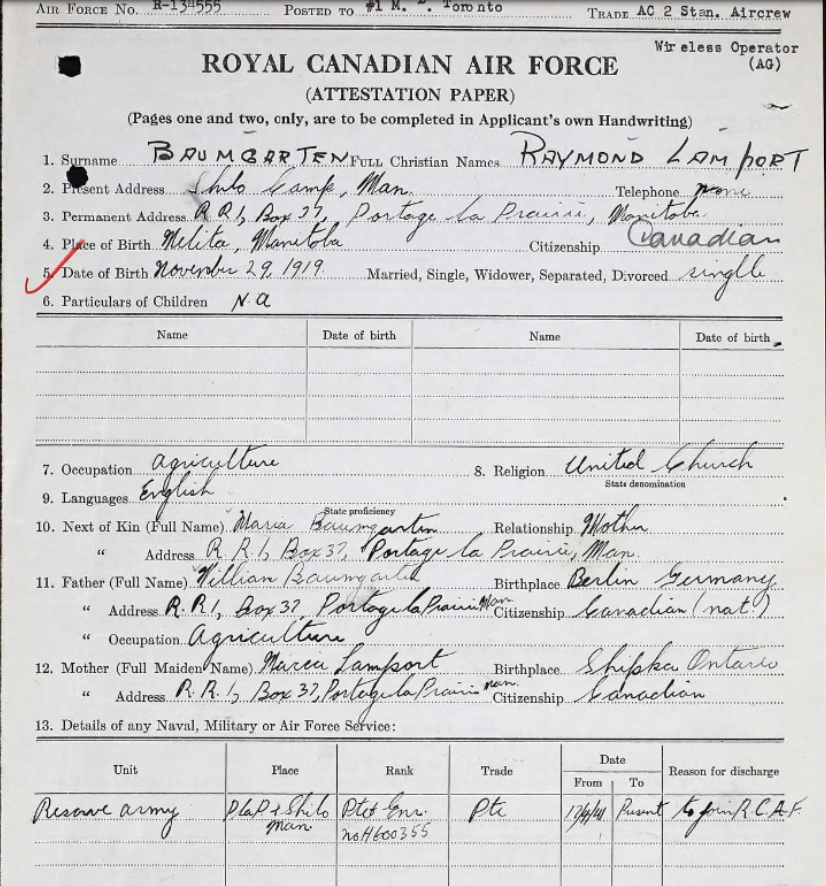 AIR FORCE No. R-134555 POSTED TO #1 M. D. Toronto TRADE AC 2 Stan. Aircrew
Wireless Operator
(AG)
ROYAL CANADIAN AIR FORCE
(ATTESTATION PAPER)
(Pages one and two, only, are to be completed in Applicant's own Handwriting)
1. Surname BAUMGARTEN FULL Christian Names RAYMOND LAMPORT
2. Present Address Shilo Camp, Man. Telephone none
3. Permanent Address R R 1, Box 37, Portage la Prairie, Manitoba
4. Place of Birth Melita, Manitoba Citizenship Canadian
5. Date of Birth November 29, 1919. Married, Single, Widower, Separated, Divorced single
6. Particulars of Children N.a
Name Date of birth Name Date of birth
7. Occupation agriculture 8. Religion United Church
State denomination
9. Languages English
State proficiency
10. Next of Kin (Full Name) Maria Baumgarten Relationship Mother
" Address R. R. 1, Box 37, Portage la Prairie, Man.
11. Father (Full Name) William Baumgarten Birthplace Berlin Germany
" Address R. R 1, Box 37, Portage la Prairie Man. Citizenship Canadian (nat.)
" Occupation Agriculture
12. Mother (Full Maiden Name) Maria Lamport Birthplace Shipka Ontario
" Address R. R. 1, Box 37, Portage la Prairie man. Citizenship Canadian
13. Details of any Naval, Military or Air Force Service:
Unit Place Rank Trade Date Reason for discharge
From To
Reserve army P la P & Shilo Pte Pte Present to join R.C.A.F.
Man. no H600355